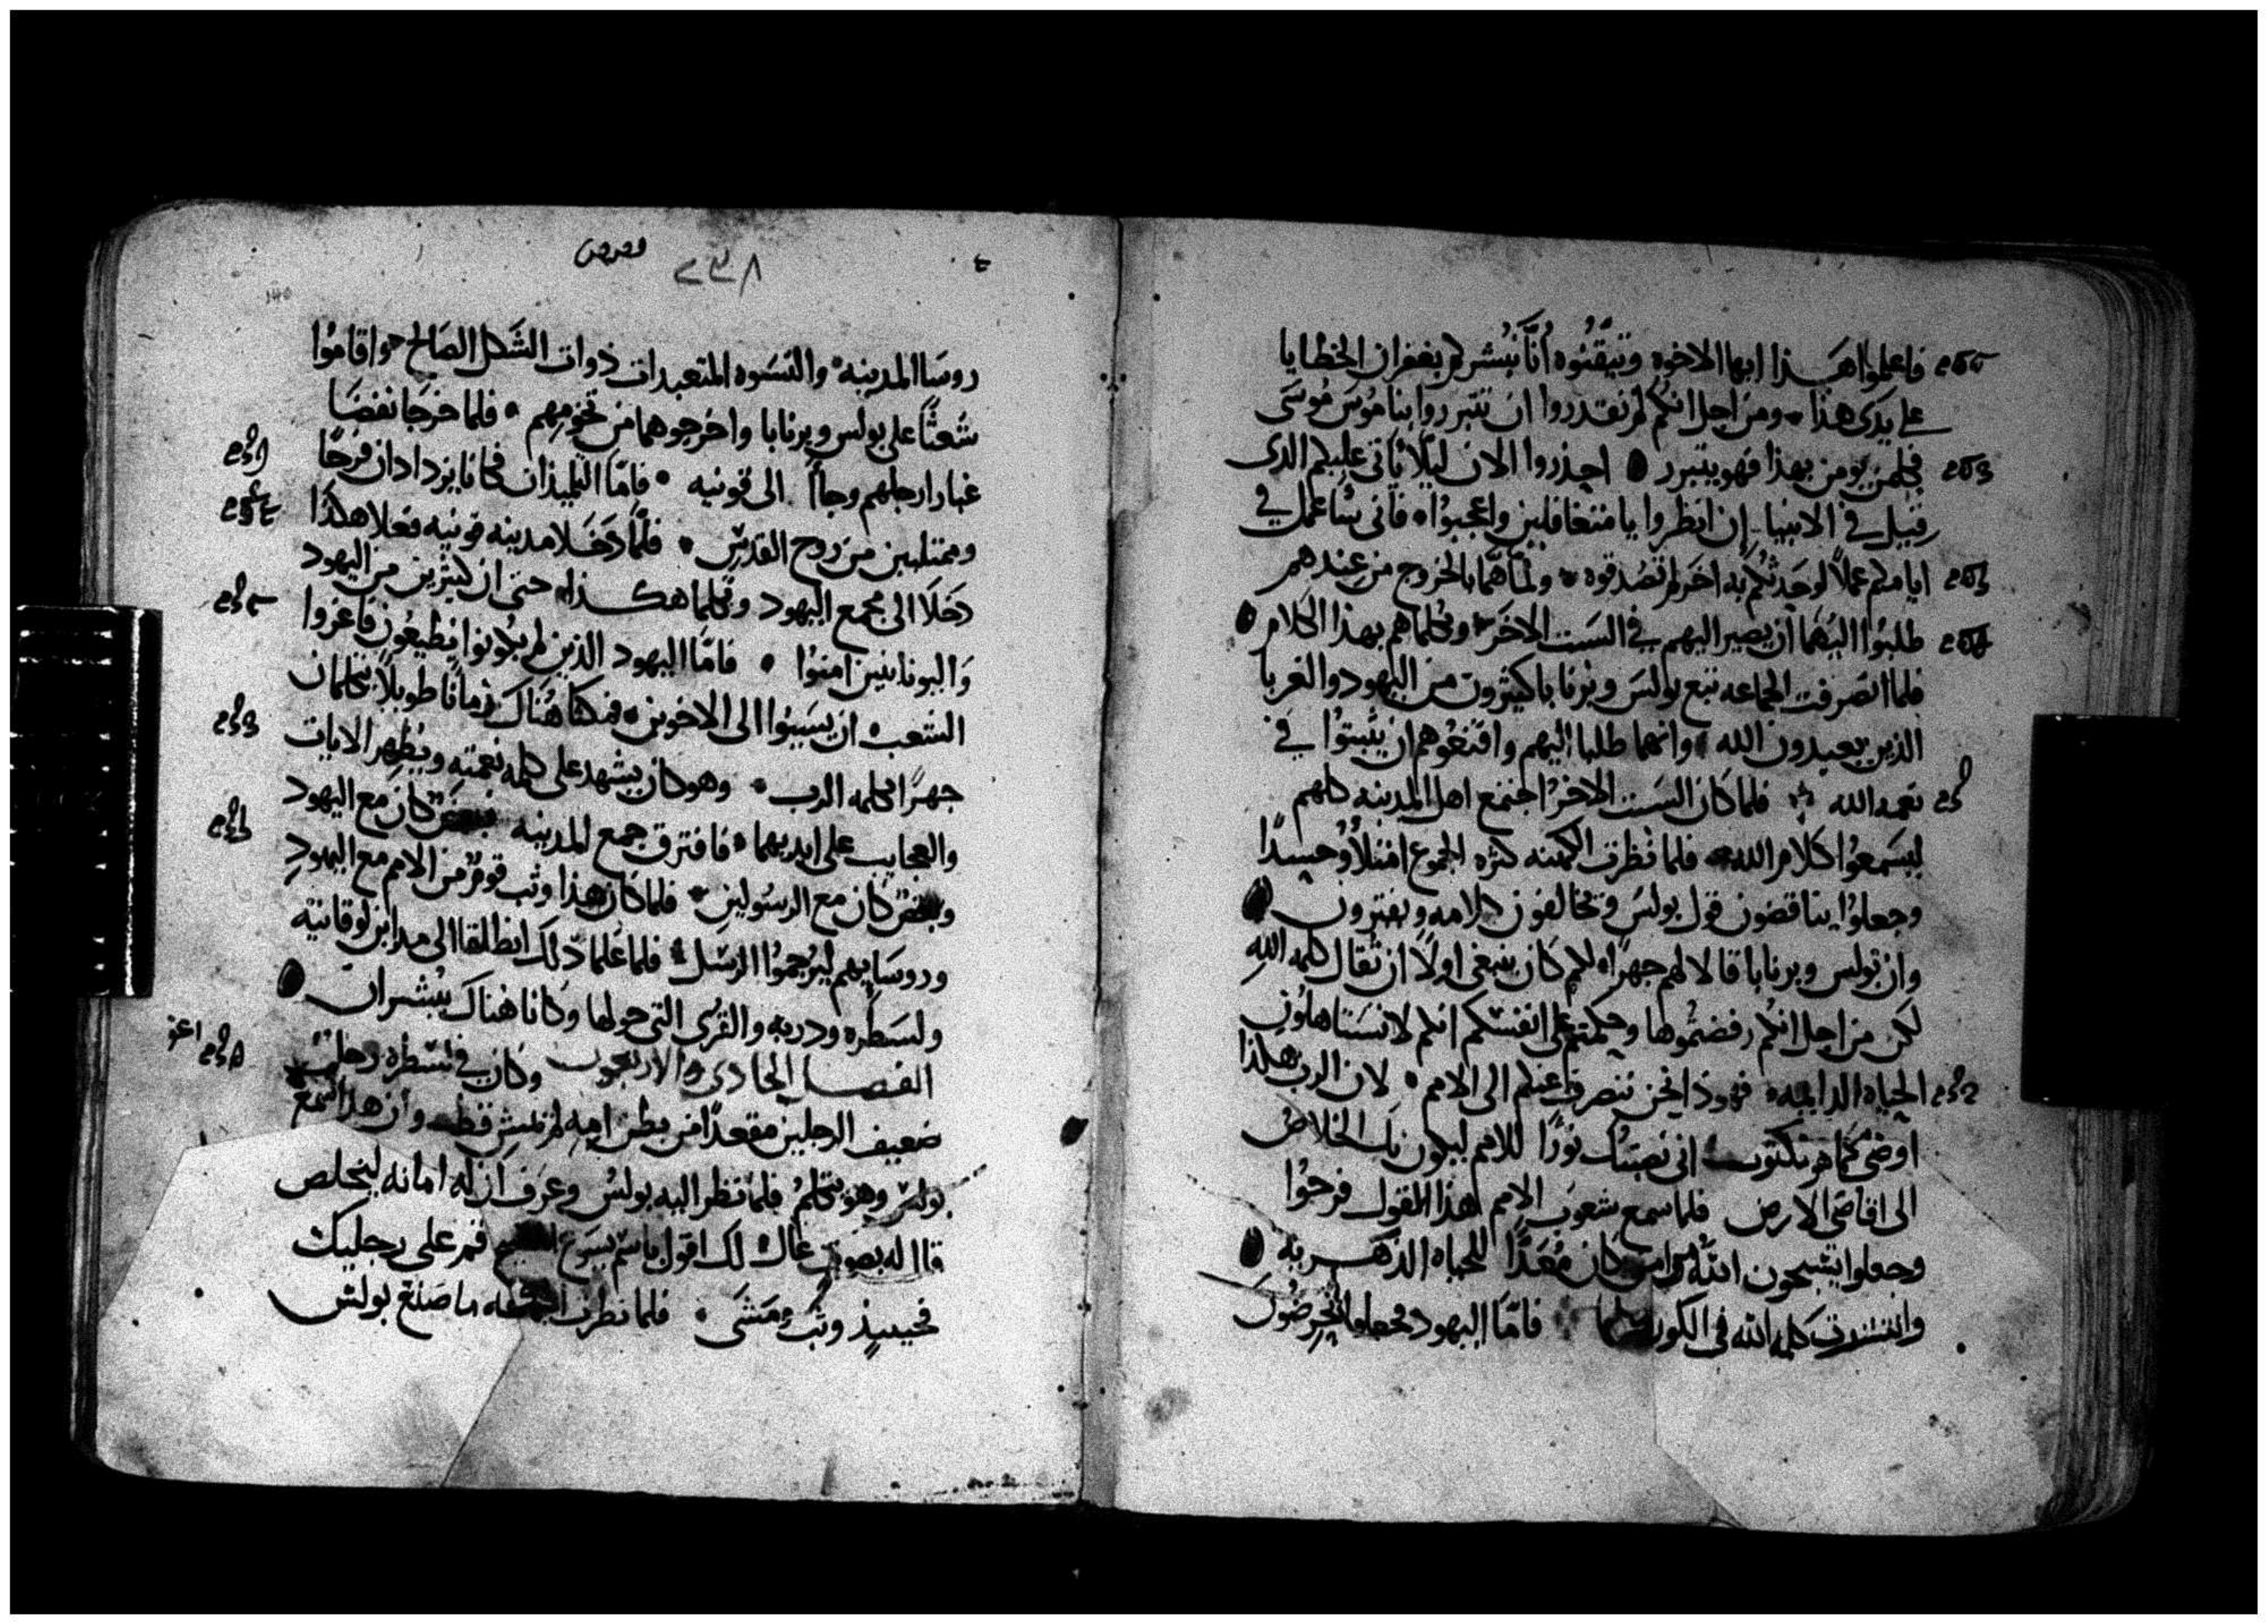 فاعلموا هذا ايها الاخوه وتيقنوه أنّا نُبشركم بغفران الخطايا
على يدى هذا ومن اجل انكم لم تقدروا ان تتبرروا بناموس موسى
فكلمن يومن بهذا فهو يتبرر احذروا الان ليلا ياتى عليكم الذى
قيل فى الانبيا ان انظروا يا متغافلين واعجبوا فانى سأعمل فى
ايامكم عملاً لو حدثكم به اخر لم تصدقوه ولما هما بالخروج من عندهم
طلبوا اليهما ان يصيرا اليهم فى السبت الاخر ويكلماهم بهذا الكلام
فلما انصرفت الجماعه تبع بولس وبرنابا كثيرون من اليهود والغربا
الذين يعبدون الله وانهما طلبا اليهم واقنعوهم ان يثبتوا فى
نعمه الله فلما كان السبت الاخر اجتمع اهل المدينه كلهم
ليسمعوا كلام الله فلما نظرت الكهنه كثره الجموع امتلأوا حسدًا
وجعلوا يناقضون قول بولس ويخالفون كلامه ويفترون
وان بولس وبرنابا قالا لهم جهرًا لكم كان ينبغى اولاً ان تقال كلمه الله
لكن من اجل انكم رفضتموها وحكمتم على انفسكم انكم لا تستاهلون
الحياه الدايمه فهوذا نحن ننصرف عنكم الى الامم لان الرب هكذا
اوصى كما هو مكتوب انى نصبتك نورًا للامم ليكون بك الخلاص
الى اقاصى الارض فلما سمع شعوب الامم هذا القول فرحوا
وجعلوا يسبحون الله وامن كان مُعَدًّا للحياه الذهريه
وانتشرت كلمه الله فى الكوره كلها فامّا اليهود فجعلوا يحرضون
قصص
٢٣٨
روسا المدينه والنسوه المتعبدات ذوات الشكل الصالح واقاموا
شعثًا على بولس وبرنابا واخرجوهما من تخومهم فلما خرجا نفضا
غبار ارجلهم وجاأ الى قونيه فامّا التلميذان فكانا يزدادان فرحًا
وممتليين من روح القدس فلمّا دخلا مدينه قونيه فعلا هكذا
دخلا الى مجمع اليهود وتكلما هكذا حتى ان كثيرين من اليهود
واليونانيين امنوا فامّا اليهود الذين لم يكونوا يطيعون فاغروا
الشعب ان يسييوا الى الاخوين فمكثا هناك زمانًا طويلاً يتكلمان
جهرًا بكلمه الرب وهو كان يشهد على كلمه نعمته ويُظهر الايات
والعجايب على ايديهما فافترق جمع المدينه فبعض كان مع اليهود
وبعض كان مع الرسولين فلما كان هذا وثب قوم من الامم مع اليهود
وروسايهم ليرجموا الرسل فلما علما ذلك انطلقا الى مداين لوقانيه
ولسطره ودربه والقرى التى حولها وكانا هناك يُبشران
الفصل الحادى والاربعون وكان فى لسطره رجل
ضعيف الرجلين مقعدًا من بطن امه لم يمش قط وان هذا سمع
بولس وهو يتكلم فلما نظر اليه بولس وعرف ان له امانه ليخلص
قال له بصوت عال لك اقول باسم يسوع المسيح قم على رجليك
فحينيذٍ وثب ومشى فلما نظرت الجماعه ما صنع بولس